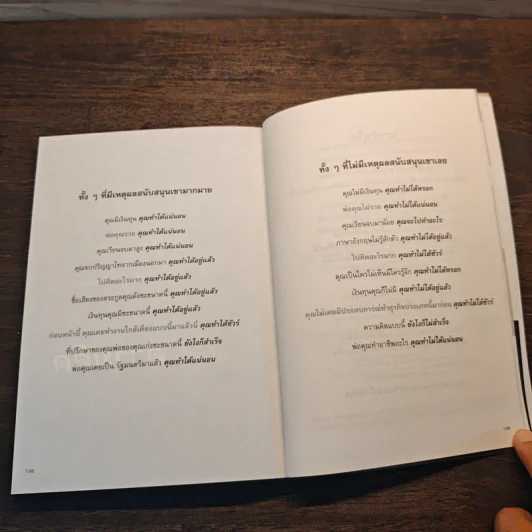 ทั้ง ๆ ที่มีเหตุผลสนับสนุนเขามากมาย
คุณมีเงินทุน คุณทำได้แน่นอน
พ่อคุณรวย คุณทำได้แน่นอน
คุณเรียนจบมาสูง คุณทำได้แน่นอน
คุณจบปริญญาโทจากเมืองนอกมา คุณทำได้อยู่แล้ว
ไปคิดอะไรมาก คุณทำได้อยู่แล้ว
ชื่อเสียงของตระกูลคุณดังซะขนาดนี้ คุณทำได้อยู่แล้ว
เงินทุนคุณมีซะขนาดนี้ คุณทำได้อยู่แล้ว
ก่อนหน้านี้ คุณเคยทำงานใกล้เคียงแบบนี้มาแล้วนี่ คุณทำได้ชัวร์
ที่ปรึกษาของคุณพ่อของคุณเก่งซะขนาดนี้ ยังไงก็สำเร็จ
พ่อคุณเคยเป็น รัฐมนตรีมาแล้ว คุณทำได้แน่นอน
168
ทั้ง ๆ ที่ไม่มีเหตุผลสนับสนุนเขาเลย
คุณไม่มีเงินทุน คุณทำไม่ได้หรอก
พ่อคุณไม่รวย คุณทำไม่ได้แน่นอน
คุณเรียนจบมาน้อย คุณจะไปทำอะไร
ภาษาอังกฤษไม่รู้สักตัว คุณทำไม่ได้อยู่แล้ว
ไปคิดอะไรมาก คุณทำไม่ได้ชัวร์
คุณเป็นใครไม่เห็นมีใครรู้จัก คุณทำไม่ได้หรอก
เงินทุนคุณก็ไม่มี คุณทำไม่ได้อยู่แล้ว
คุณไม่เคยมีประสบการณ์ทำธุรกิจประเภทนี้มาก่อน คุณทำไม่ได้ชัวร์
ความคิดแบบนี้ ยังไงก็ไม่สำเร็จ
พ่อคุณทำอาชีพอะไร คุณทำไม่ได้แน่นอน
169